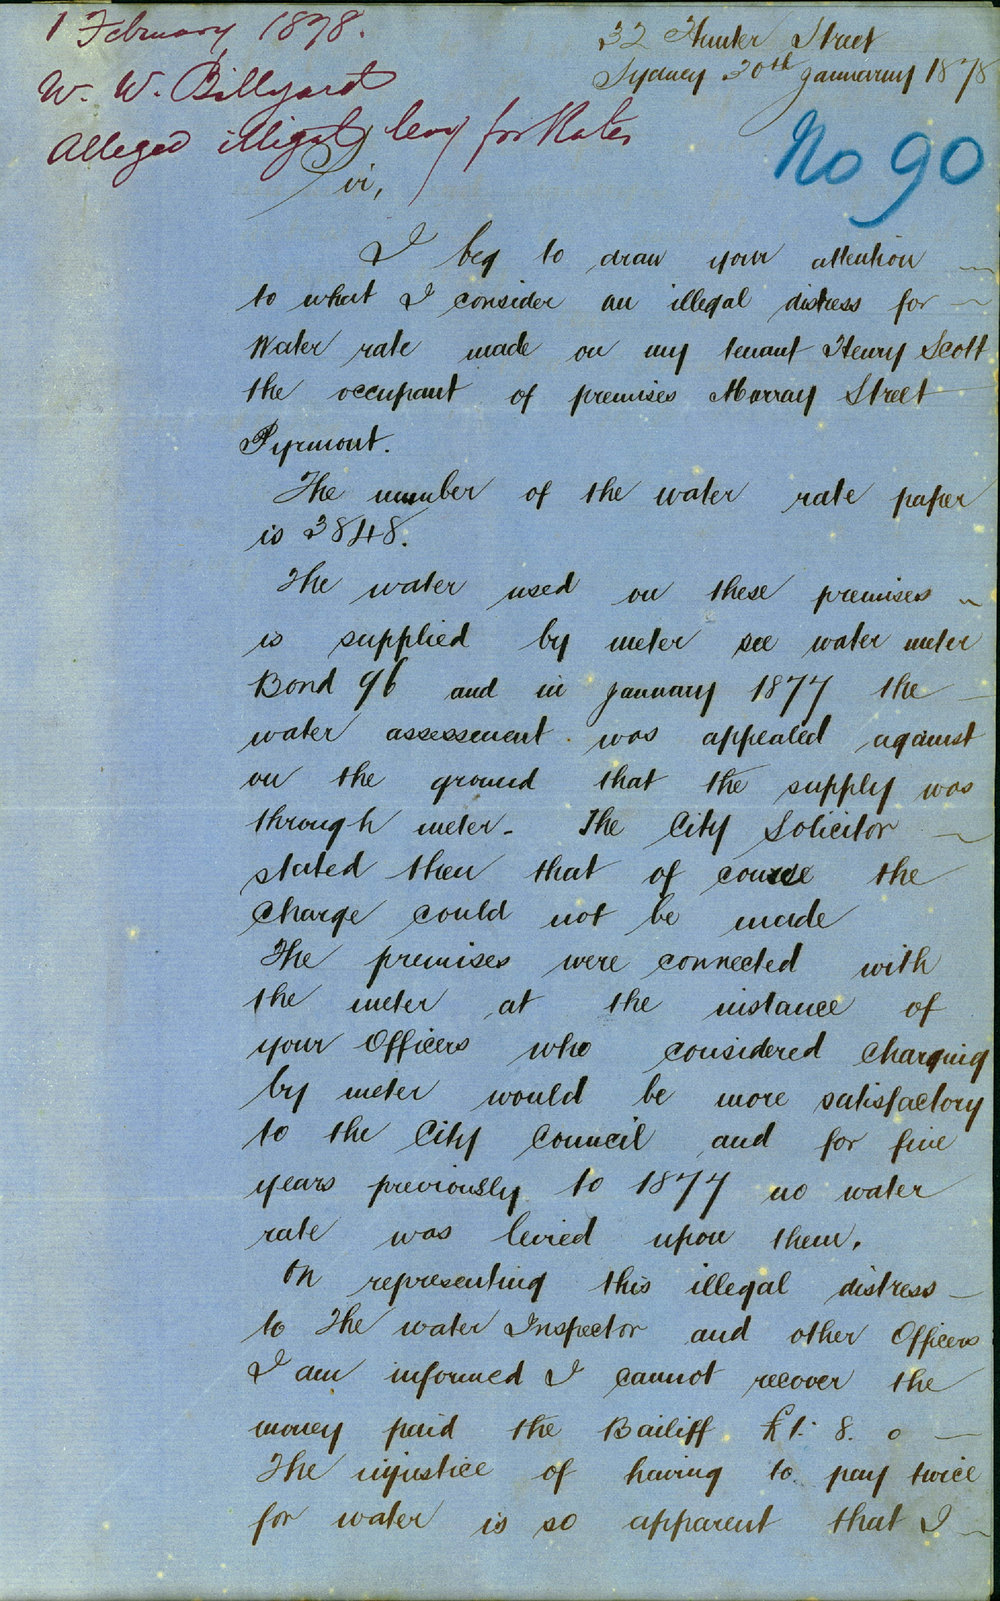 1 February 1878.
W. W. Billyard
Alleged illigal levy for Rates
32 Hunter Street
Sydney 30th January 1878
No 90
Sir,
I beg to draw your attention
to what I consider an illegal distress for
Water rate made on my tenant Henry Scott
the occupant of premises Murray Street
Pyrmont.
The number of the water rate paper
is 3848.
The water used on these premises
is supplied by meter see water meter
Bond 96 and in January 1877 the
water assessment was appealed against
on the ground that the supply was
through meter - The City Solicitor
stated then that of course the
charge could not be made
The premises were connected with
the meter at the instance of
your Officers who considered charging
by meter would be more satisfactory
to the City Council and for five
years previously to 1877 no water
rate was levied upon them.
On representing this illegal distress
to The water Inspector and other Officers
I am informed I cannot recover the
money paid the Bailiff £1: 8. 0
The injustice of having to pay twice
for water is so apparent that I